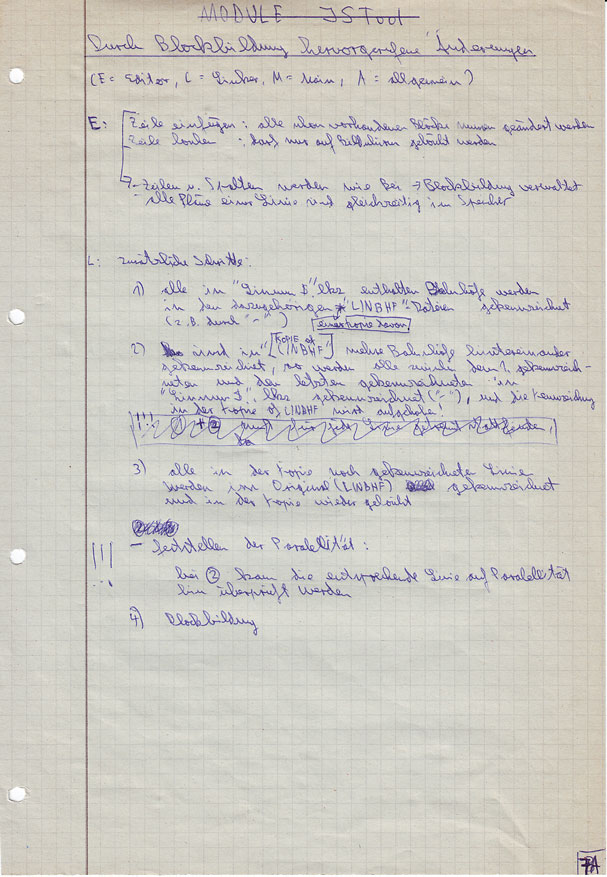 MODULE ISTool
Durch Blockbildung hervorgerufene Änderungen
(E = Editor, L = Linker, M = Main, A = allgemein)
E: Zeile einfügen: alle schon vorhandenen Blöcke müssen geändert werden
Zeile löschen : darf nur auf Bildschirm gelöscht werden
? - Zeilen u. Spalten werden wie bei → Blockbildung verwaltet
- alle Pläne einer Linie sind gleichzeitig im Speicher
L: zusätzliche Schritte:
1) alle in "Linnum$".lks enthalten Bahnhöfe werden
in den dazugehörigen "LINBHF"-Dateien gekennzeichnet
(z.B. durch "-") einer Kopie davon
2) sind in "[KOPIE of LINBHF]" mehre Bahnhöfe hintereinander
gekennzeichnet, so werden alle zwischen dem 1. gekennzeich-
neten und den letzten gekennzeichneten in
"Linnum$".lks gekennzeichnet ("-"), und die Kennzeichnung
in der Kopie of LINBHF wird aufgehoben!
!!! 1 + 2 muß für jede Linie getrennt stattfinden!
3) alle in der Kopie noch gekennzeichnete Linien
werden im Original (LINBHF) gekennzeichnet
und in der Kopie wieder gelöscht
!!! - feststellen der Paralellität:
bei 2 kann die entsprechende Linie auf Paralellität
hin überprüft werden
4) Blockbildung